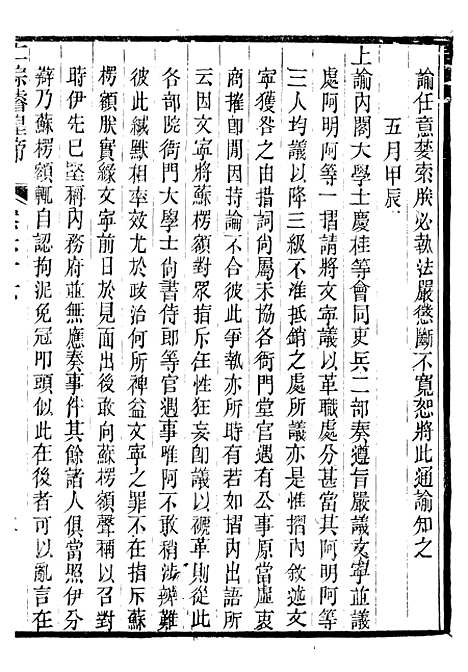 諭任意葽索朕必執法嚴懲斷不寬恕將此通諭知之
五月甲辰
上諭內閣大學士慶桂等會同吏兵二部奏遵旨嚴議文寧並議
處阿明阿等一摺請將文寧議以革職處分甚當其阿明阿等
三人均議以降三級不准抵銷之處所議亦是惟摺內敘述文
寧獲咎之由措詞尚屬未協各衙門堂官遇有公事原當虛衷
商搉卽間因持論不合彼此爭執亦所時有若如摺內出語所
云因文寧將蘇楞額對眾指斥任性狂妄卽議以褫革則從此
各部院衙門大學士尚書侍郎等官遇事唯阿不敢稍涉辨難
彼此緘默相率效尤於政治何所裨益文寧之罪不在指斥蘇
楞額朕實緣文寧前日於見面出後敢向蘇楞額聲稱以召對
時伊先已奏稱內務府並無應奏事件其餘諸人俱當照伊分
辯乃蘇楞額輒自認拘泥免冠叩頭似此在後者可以亂言在
仁宗睿皇帝